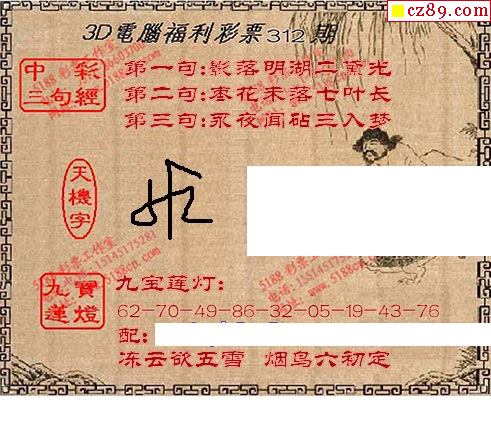 cz89.com
3D電腦福利彩票312期
中彩三句經
第一句:影落明湖二黛光
第二句:枣花未落七叶长
第三句:永夜闻砧三入梦
天機字
九寶蓮燈
九宝莲灯:
62-70-49-86-32-05-19-43-76
配:
冻云欲五雪 烟鸟六初定
5188 彩票工作室